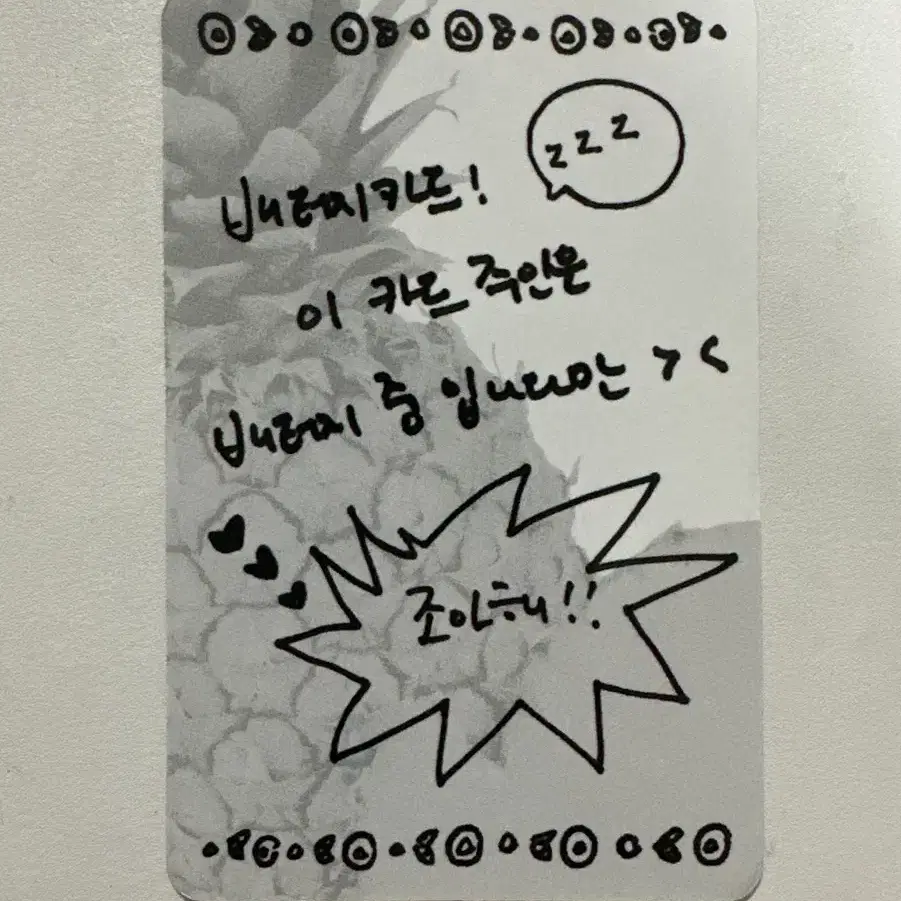 zzz
배터지카드!
이 카드 주인은
배터지 중 입니다만 > <
조아해!!